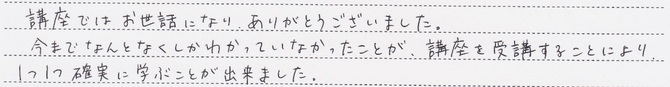 講座ではお世話になり、ありがとうございました。
今までなんとなくしかわかっていなかったことが、講座を受講することにより、
1つ1つ確実に学ぶことが出来ました。